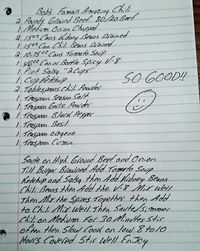 Bob's Famous Amazing Chili
2 Pounds Ground Beef 80/20 Beef
1 Medium Onion Chopped
2 15oz Cans Kidney Beans Drained
1 15oz Can Chili Beans Drained
2 10.75oz Cans Tomato Soup
1 46oz Can or Bottle Spicy V-8
1 Pint Salsa "2 Cups"
1 Cup Ketchup
2 Tablespoons Chili Powder
1 Teaspoon Season Salt
1 Teaspoon Garlic Powder
1 Teaspoon Black Pepper
1 Teaspoon Basil
1 Teaspoon Oregano
1 Teaspoon Cumin
SO GOOD!!
Saute on High Ground Beef and Onion
Till Burger Browned Add Tomato Soup
Ketchup and Salsa then Add Kidney Beans
Chili Beans then Add the V-8 Mix Well
Then Mix the Spices Together then Add
to Chili Mix Well Then Saute Simmer
Chili on Medium For 30 Minutes Stir
often then Slow Cook on low 8 to 10
Hours Covered Stir Well Enjoy